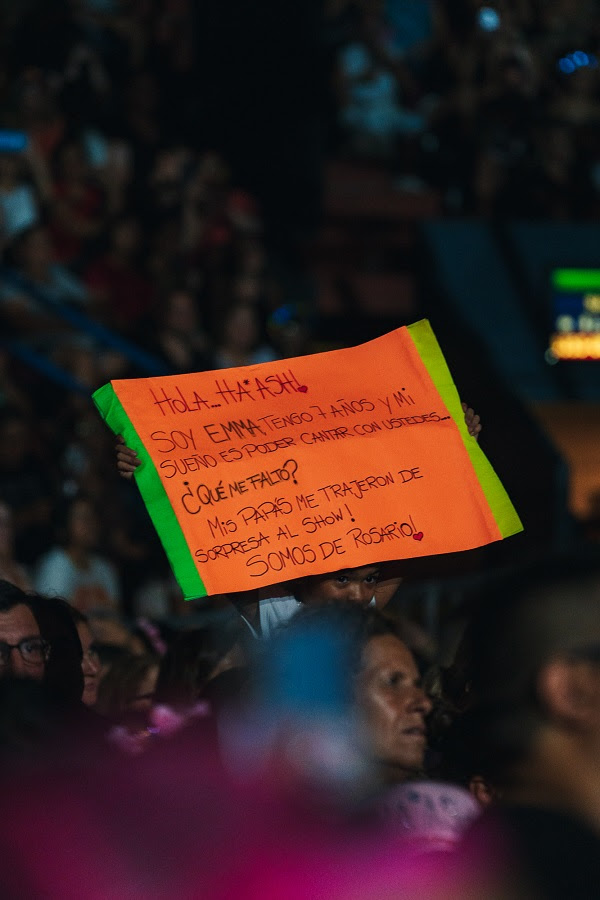 HOLA... HA*ASH!
SOY EMMA, TENGO 7 AÑOS Y MI
SUEÑO ES PODER CANTAR CON USTEDES...
¿QUÉ ME FALTO?
MIS PAPÁS ME TRAJERON DE
SORPRESA AL SHOW!
SOMOS DE ROSARIO!